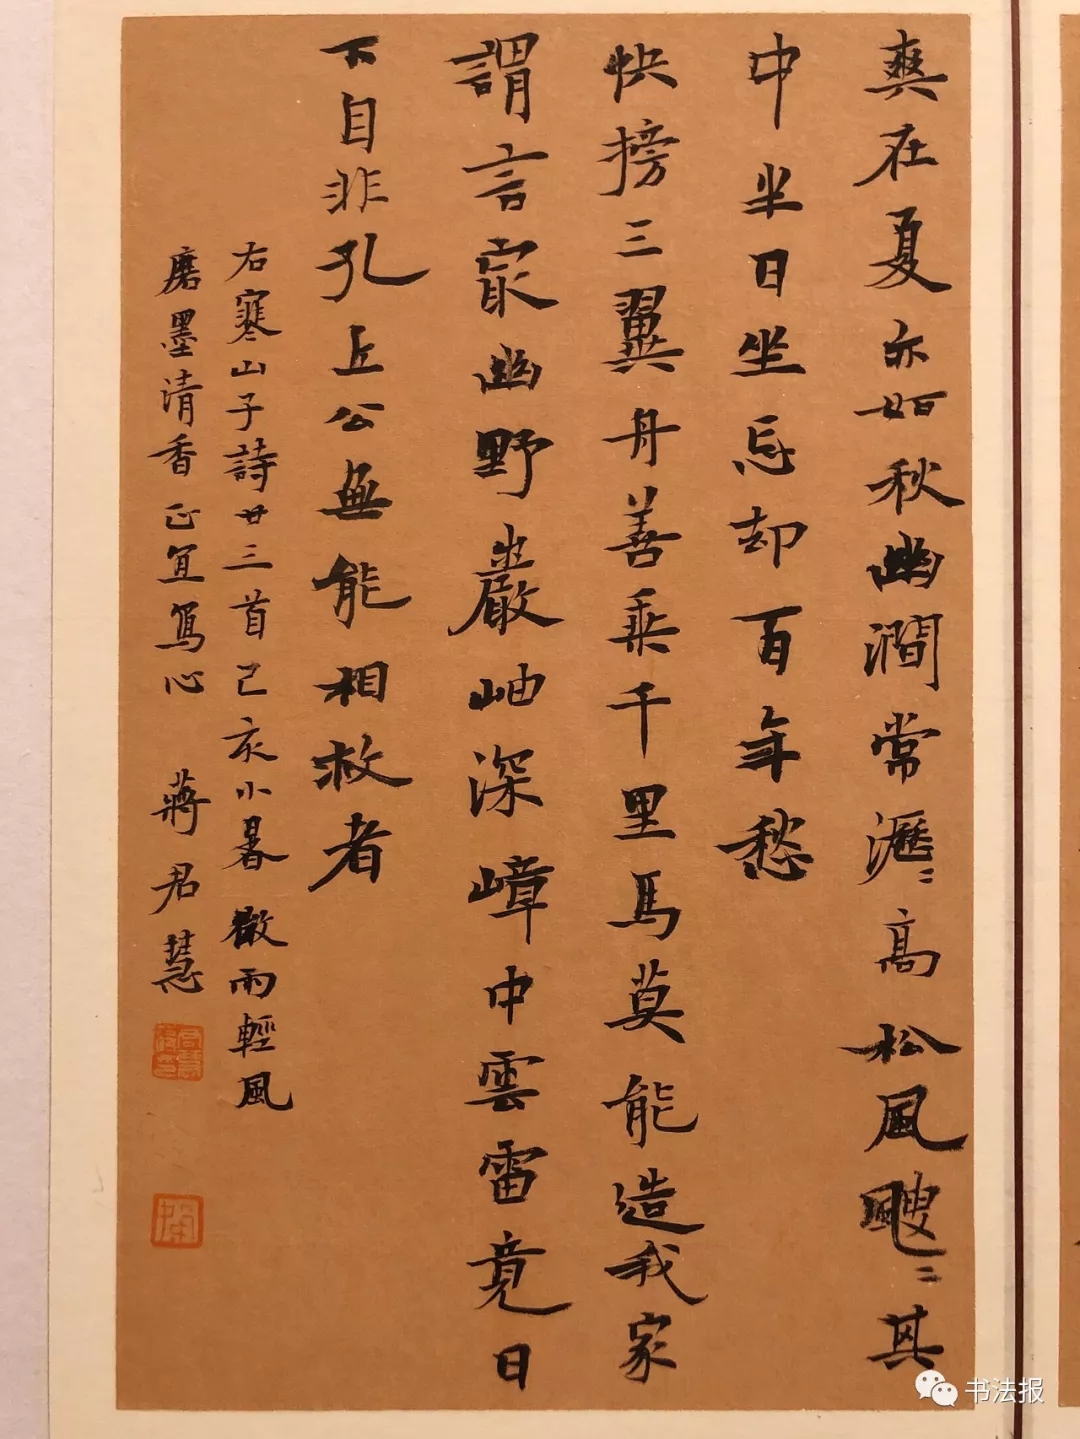 爽在夏亦如秋幽澗常瀝〻高松風颼〻其
中半日坐忘却百年愁
快搒三翼舟善乘千里馬莫能造我家
謂言最幽野巖岫深嶂中雲雷竟日
下自非孔丘公無能相救者
右寒山子詩廿三首己亥小暑微雨輕風
磨墨清香正宜寫心 蔣君慧
书法报